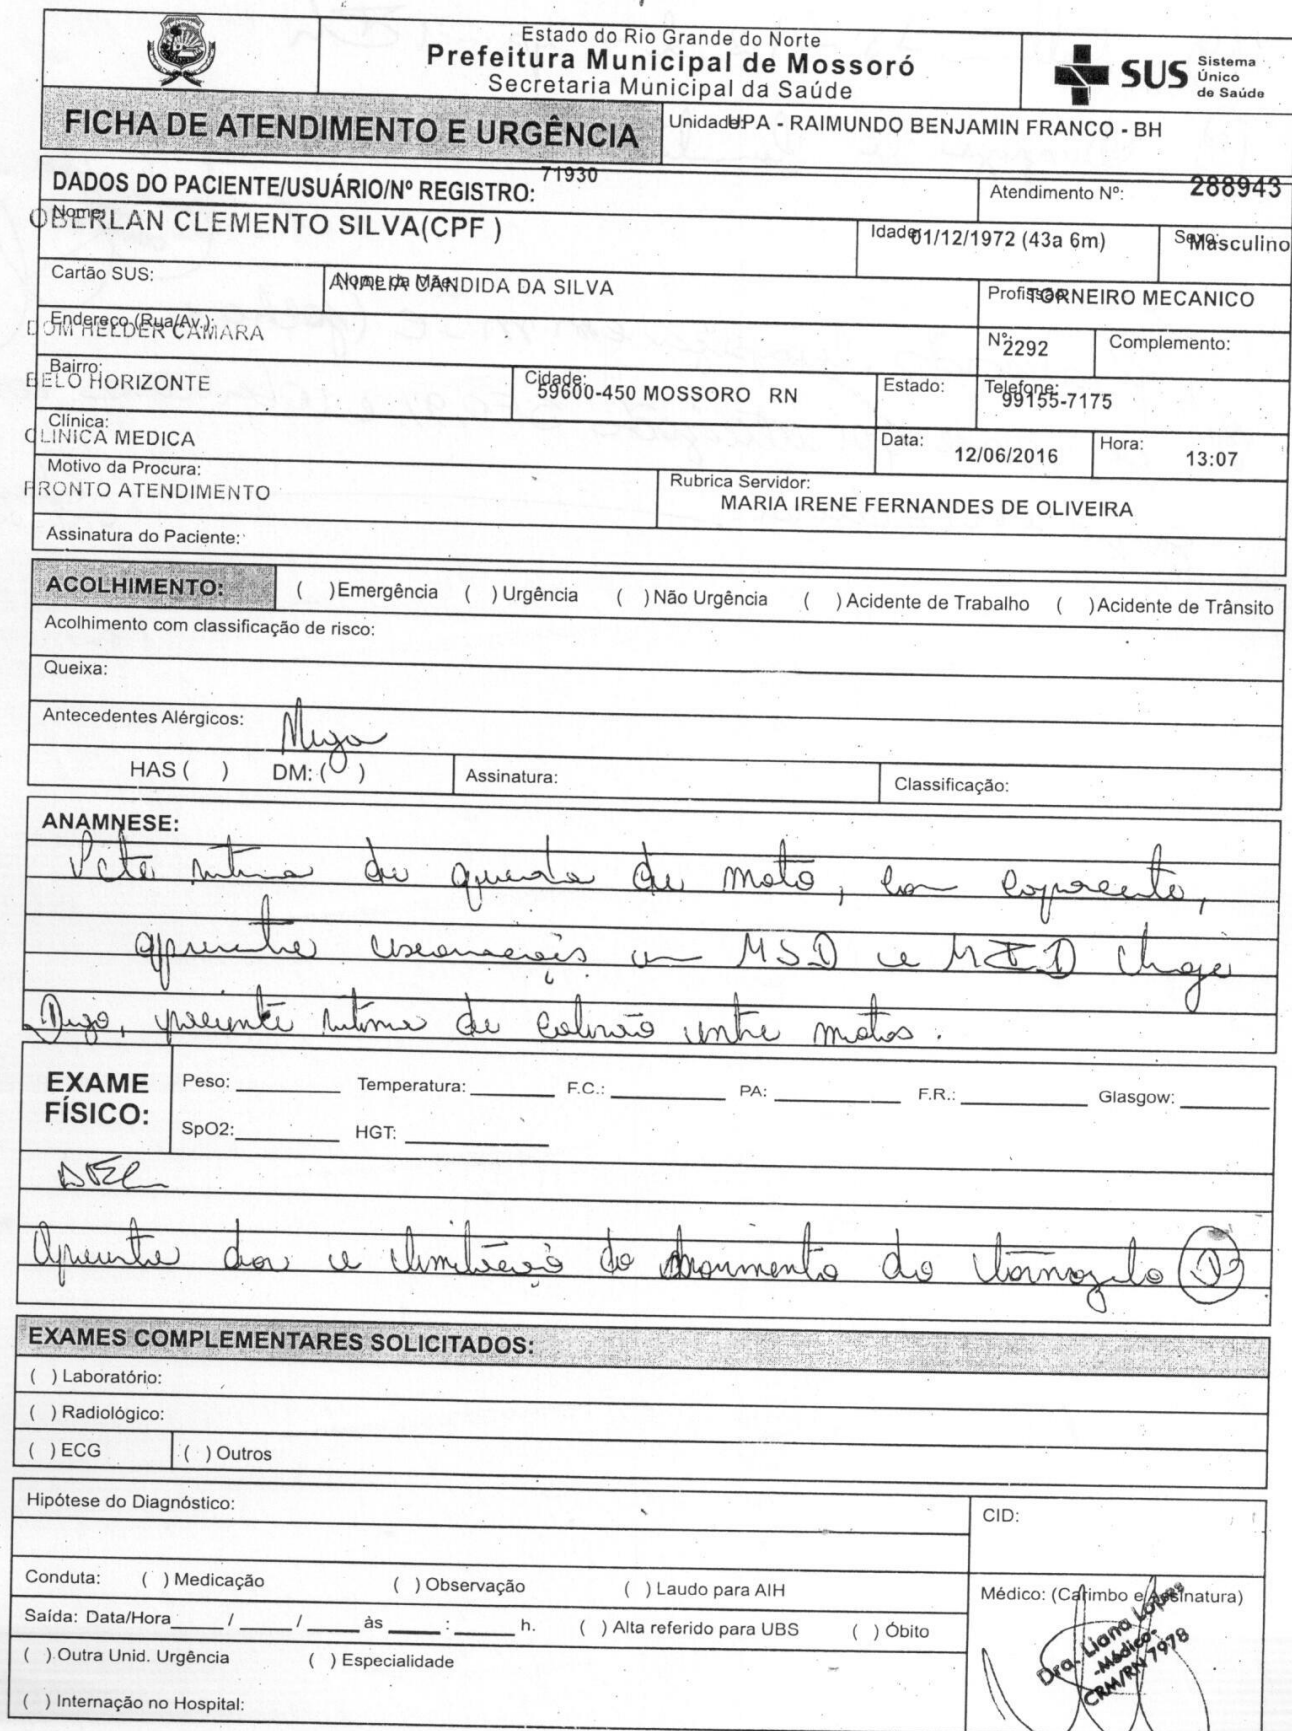 Estado do Rio Grande do Norte
Prefeitura Municipal de Mossoró
Secretaria Municipal da Saúde
SUS Sistema Único de Saúde
FICHA DE ATENDIMENTO E URGÊNCIA
Unidade: UPA - RAIMUNDO BENJAMIN FRANCO - BH
DADOS DO PACIENTE/USUÁRIO/Nº REGISTRO: 71930
Atendimento Nº: 288943
Nome: OBERLAN CLEMENTO SILVA(CPF )
Idade: 01/12/1972 (43a 6m)
Sexo: Masculino
Cartão SUS:
Nome da Mãe: ANALIA CANDIDA DA SILVA
Profissão: TORNEIRO MECANICO
Endereço (Rua/Av.): DOM HELDER CAMARA
Nº: 2292
Complemento:
Bairro: BELO HORIZONTE
Cidade: 59600-450 MOSSORO RN
Estado:
Telefone: 99155-7175
Clínica: CLINICA MEDICA
Data: 12/06/2016
Hora: 13:07
Motivo da Procura: PRONTO ATENDIMENTO
Rubrica Servidor: MARIA IRENE FERNANDES DE OLIVEIRA
Assinatura do Paciente:
ACOLHIMENTO: ( )Emergência ( )Urgência ( )Não Urgência ( )Acidente de Trabalho ( )Acidente de Trânsito
Acolhimento com classificação de risco:
Queixa:
Antecedentes Alérgicos: Nega
HAS ( ) DM: ( )
Assinatura:
Classificação:
ANAMNESE:
Pcte vítima de queda de moto, com capacete,
apresenta escoriações em MSD e MID
Digo, paciente vítima de colisão entre motos.
EXAME FÍSICO:
Peso: Temperatura: F.C.: PA: F.R.: Glasgow:
SpO2: HGT:
Apresenta dor e limitação do movimento do tornozelo D
EXAMES COMPLEMENTARES SOLICITADOS:
( ) Laboratório:
( ) Radiológico:
( ) ECG ( ) Outros
Hipótese do Diagnóstico:
CID:
Conduta: ( ) Medicação ( ) Observação ( ) Laudo para AIH
Médico: (Carimbo e Assinatura)
Saída: Data/Hora / / às : h. ( ) Alta referido para UBS ( ) Óbito
( ) Outra Unid. Urgência ( ) Especialidade
( ) Internação no Hospital:
Dra. Liana Lopes
-Médico-
CRM/RN 7978